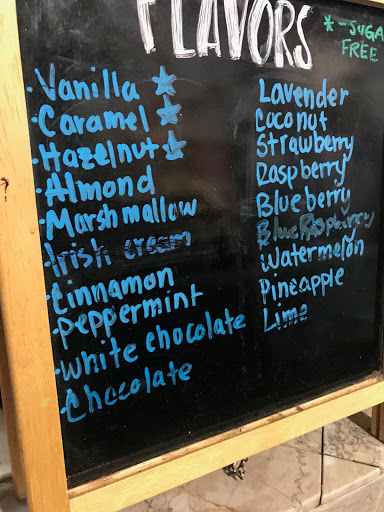 FLAVORS
* - SUGA
FREE
· Vanilla ★
· Caramel ★
· Hazelnut ★
· Almond
· Marshmallow
· Irish cream
· Cinnamon
· Peppermint
· White chocolate
· Chocolate
Lavender
Coconut
Strawberry
Raspberry
Blueberry
Blue Raspberry
Watermelon
Pineapple
Lime